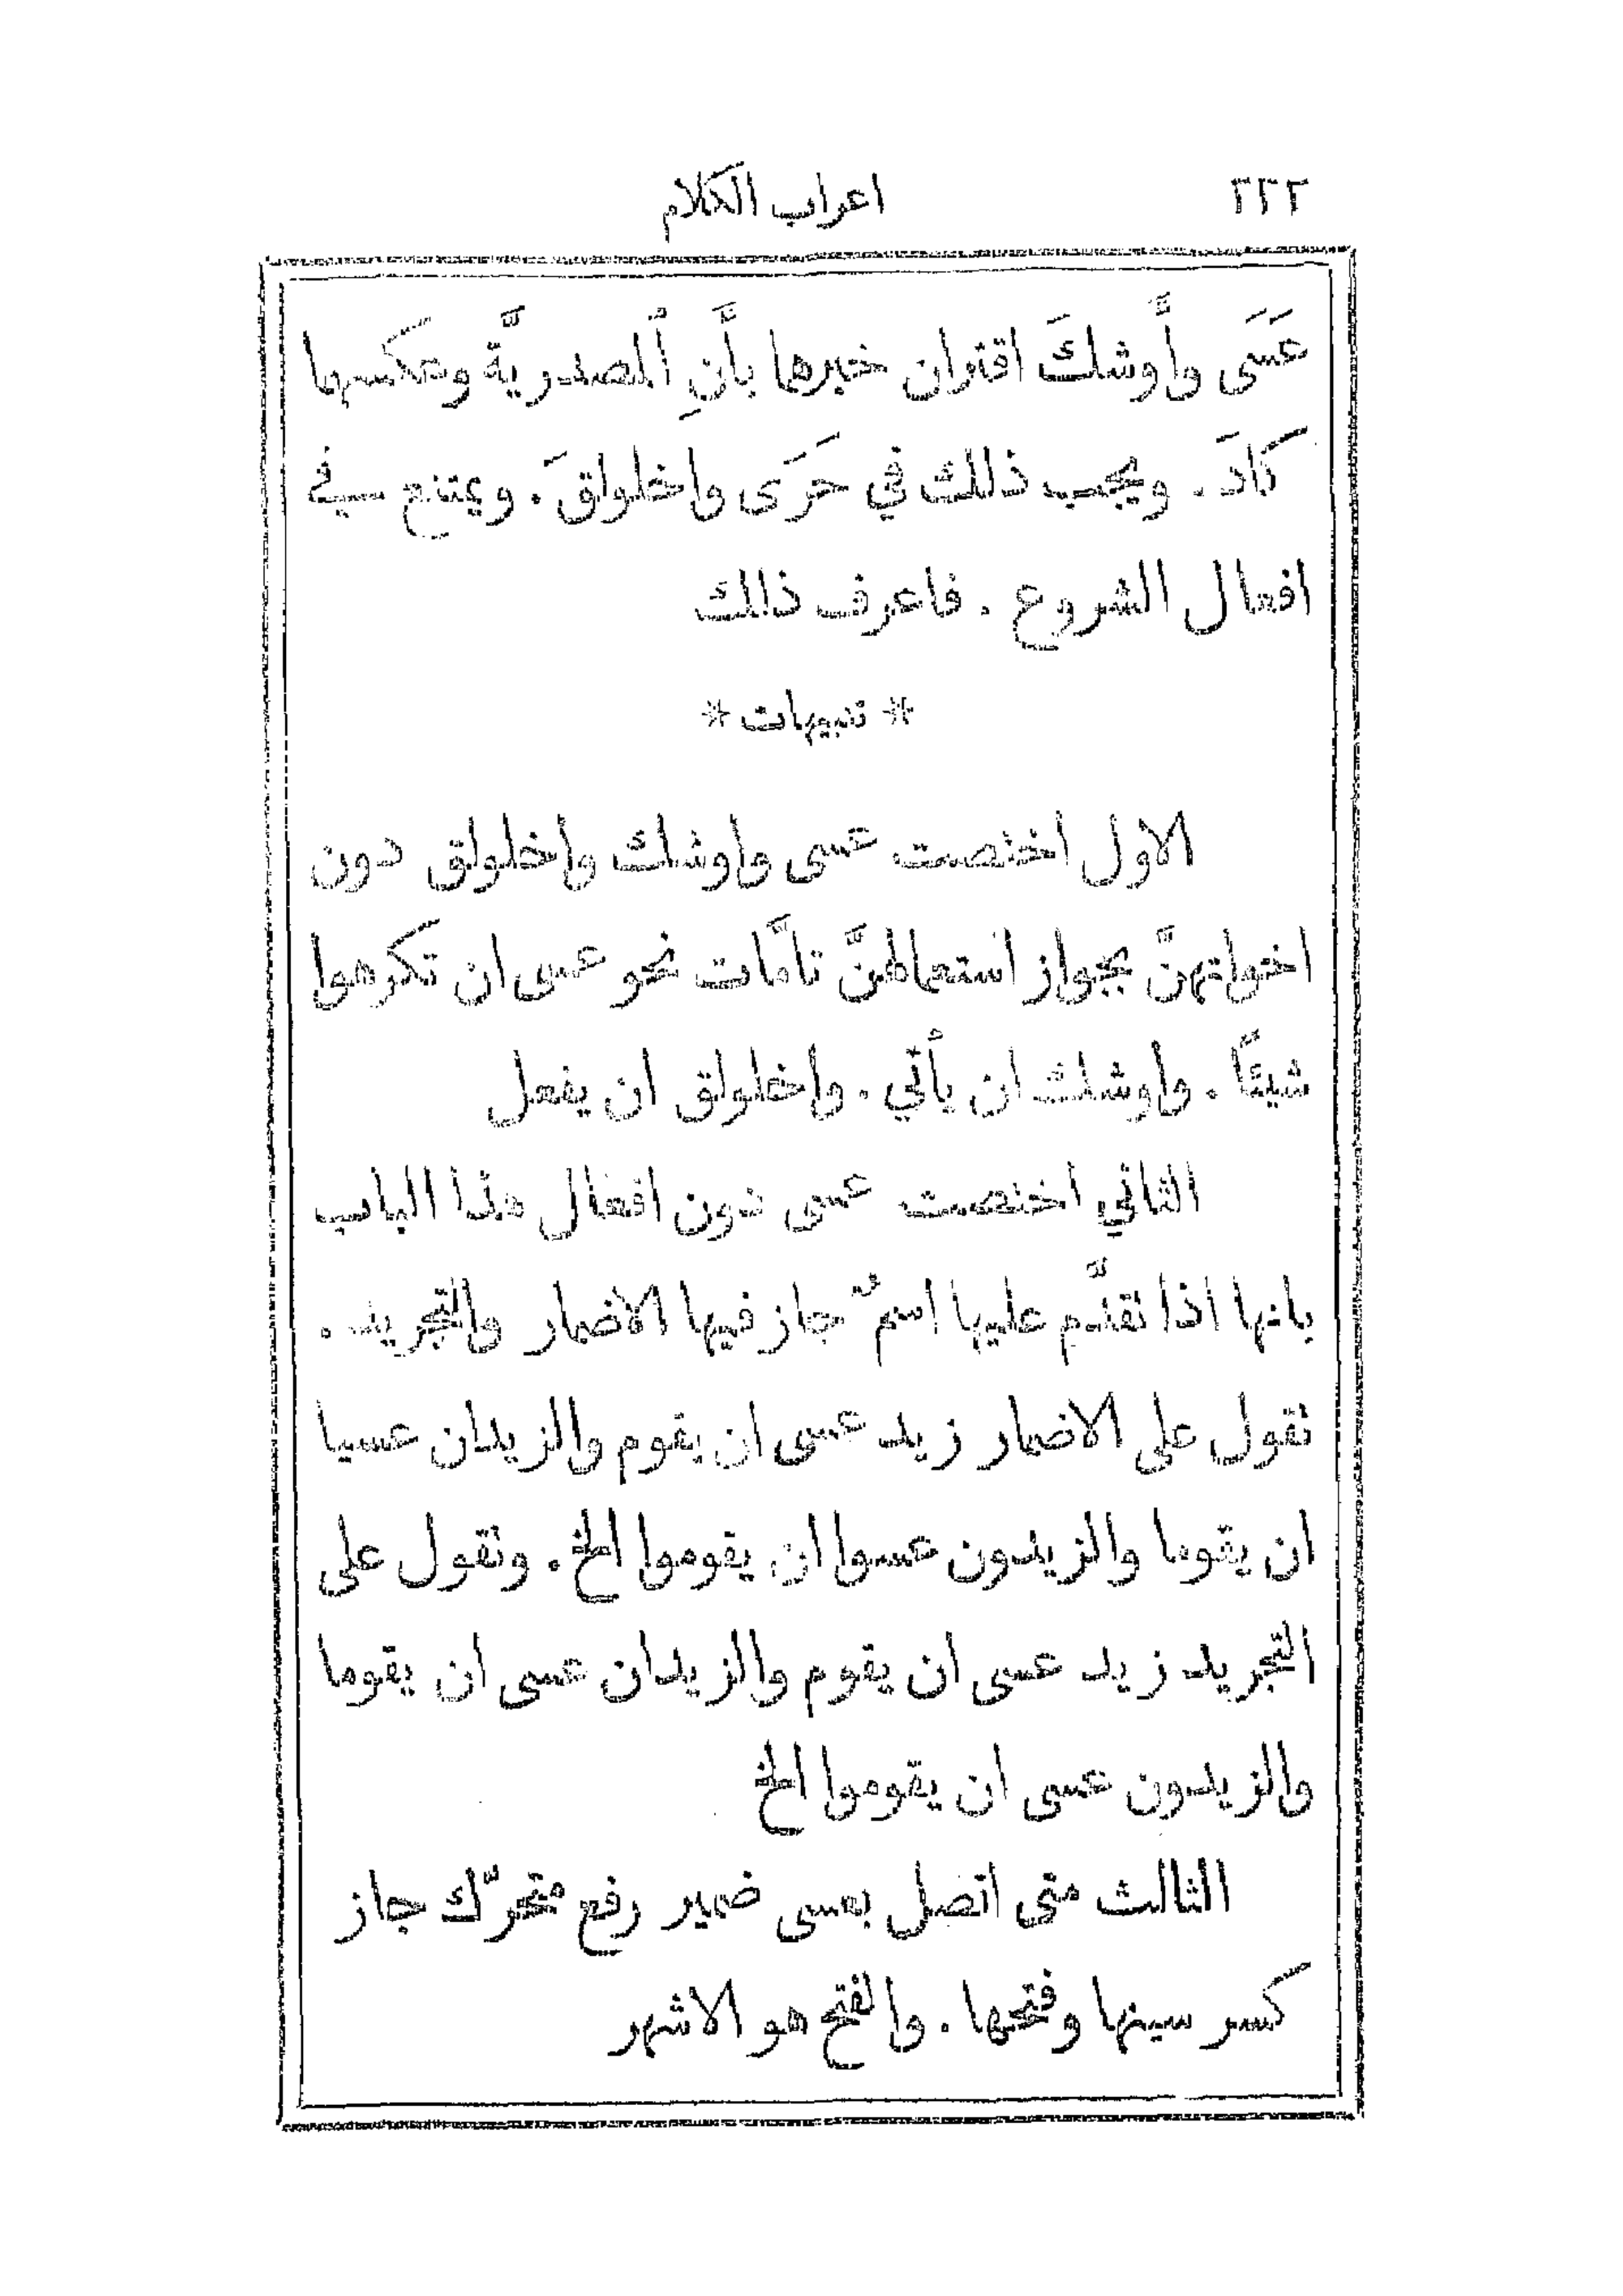 ٢٢٢ اعراب الكلام
عَسَى وأَوشكَ اقتران خبرها بأَنِ ٱلمصدريَّة وعكسها
كادَ . ويجب ذلك في حَرَى واخلولقَ . ويمتنع في
افعال الشروع . فاعرف ذلك
* تنبيهات *
الاول اختصت عسى واوشك واخلولق دون
اخواتهنَّ بجواز استعمالهنَّ تامَّات نحو عسى ان تكرهوا
شيئًا . واوشك ان يأتي . واخلولق ان يفعل
الثاني اختصت عسى دون افعال هذا الباب
بانها اذا تقدَّم عليها اسمٌ جاز فيها الاضمار والتجريد .
تقول على الاضمار زيد عسى ان يقوم والزيدان عسيا
ان يقوما والزيدون عسوا ان يقوموا الخ . وتقول على
التجريد زيد عسى ان يقوم والزيدان عسى ان يقوما
والزيدون عسى ان يقوموا الخ
الثالث متى اتصل بعسى ضمير رفع متحرّك جاز
كسر سينها وفتحها . والفتح هو الاشهر